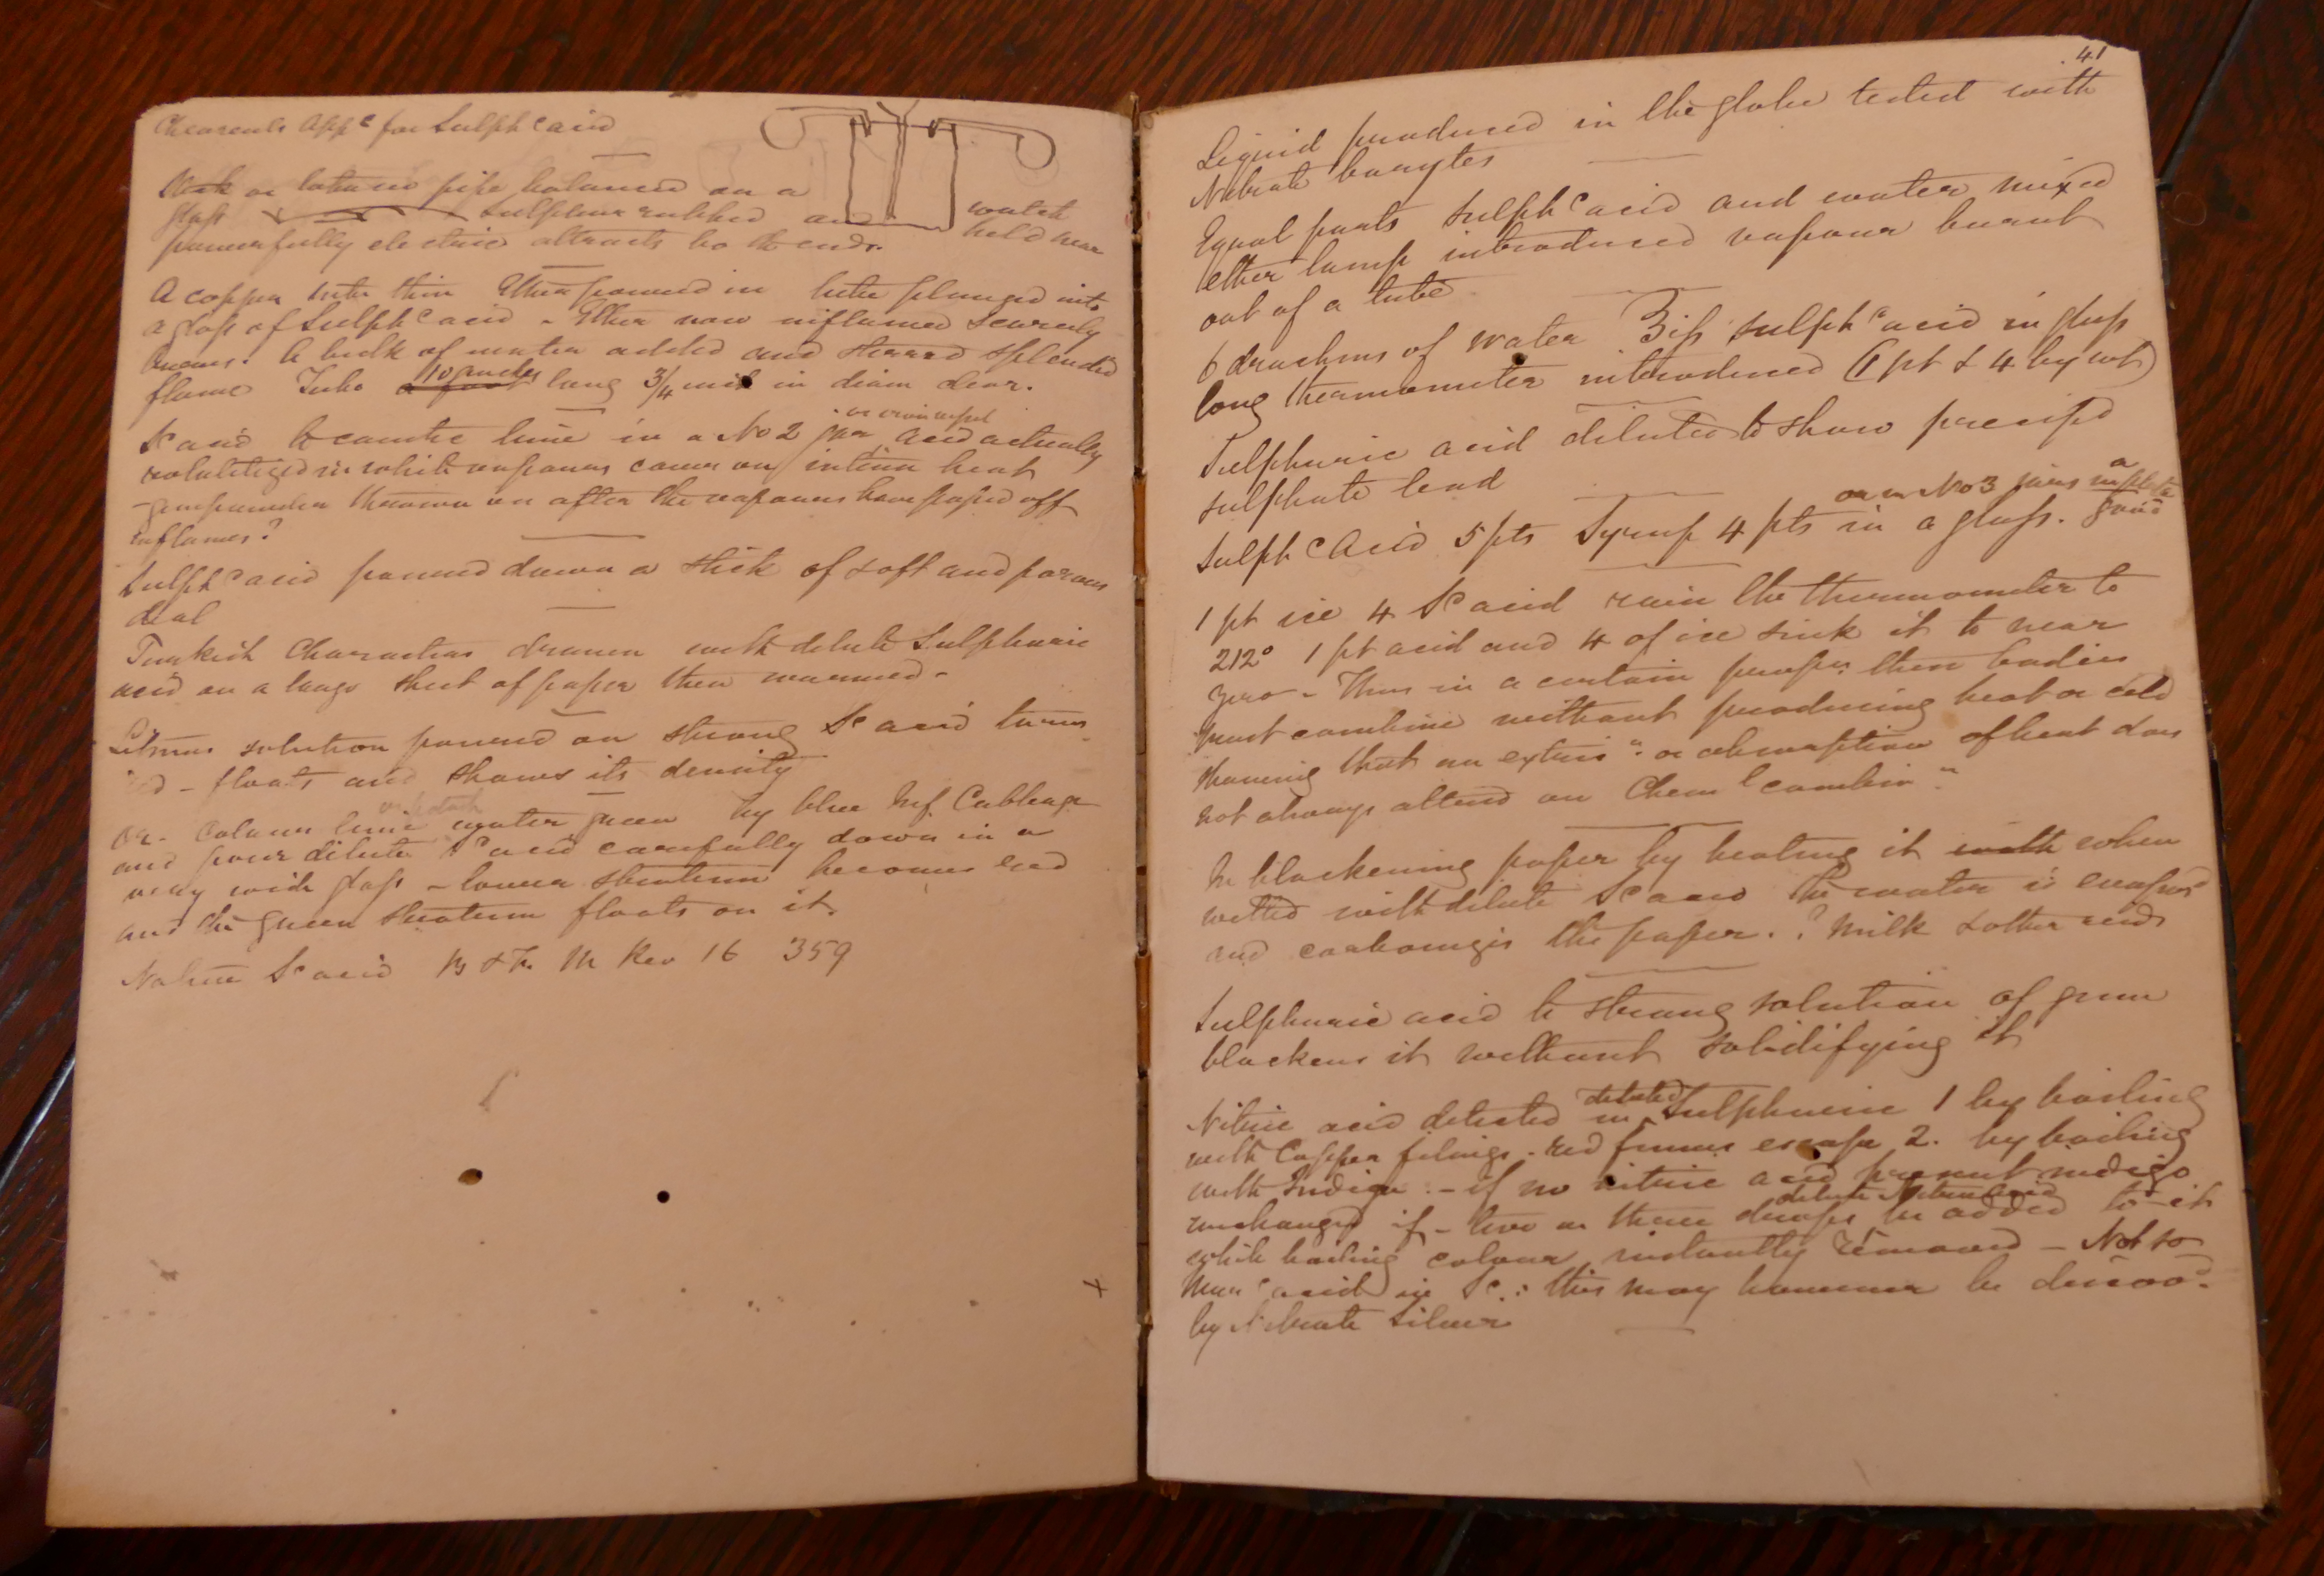 app c for Sulph c acid
or tobacco pipe balanced on a
glass Sulphur rubbed and watch
powerfully electric attracts both ends. held near
A copper tube thin Ether poured in tube plunged into
a glass of Sulph c acid - Ether now inflamed Scarcely
burns. A bulk of water added and stirred splendid
flame Tube a foot 10 inches long 3/4 inch in diam clear.
Sc acid to caustic lime in a No 2 jar or iron vessel acid actually
volatilized in white vapours comes on intense heat
- gunpowder thrown on after the vapours have passed off
inflames?
Sulph c acid poured down a stick of soft and porous
deal
Turkish Characters drawn with dilute Sulphuric
acid on a large sheet of paper then warmed -
Litmus solution poured on strong Sc acid turns
red - floats and shows its density
or - Colour lime water green by blue Inf. Cabbage
and pour dilute Sc acid carefully down in a
very wide glass - lower stratum becomes red
and the green stratum floats on it.
Native Sc acid Rev 16 359
41
Liquid produced in the globe tested with
Nitrate barytes
Equal parts Sulph c acid and water mixed
ether lamp introduced vapour burnt
out of a tube
6 drachms of water ʒiß sulph c acid in glass
long thermometer introduced (1 pt & 4 by wt)
Sulphuric acid diluted to show precipd
sulphate lead
or in No 3 jars in a plate
Sulph c Acid 5 pts Syrup 4 pts in a glass. good
1 pt ice 4 Sc acid raise the thermometer to
212° 1 pt acid and 4 of ice sink it to near
zero - Thus in a certain propn these bodies
must combine without producing heat or cold
showing that an extric n or absorption of heat does
not always attend on Chem l combin n
In blackening paper by heating it with when
wetted with dilute Sc acid the water is evapord
and carbonizes the paper. ? Milk & other acids
Sulphuric acid to strong solution of gum
blackens it without solidifying it
Nitric acid detected in diluted Sulphuric 1 by boiling
with Copper filings - red fumes escape 2. by boiling
with Indigo :- if no nitric acid present indigo
unchanged if - two or three drops dilute Nitric Acid be added to it
while boiling colour instantly removed - Not so
Mur c acid in Sc : this may however be discovd
by Nitrate Silver